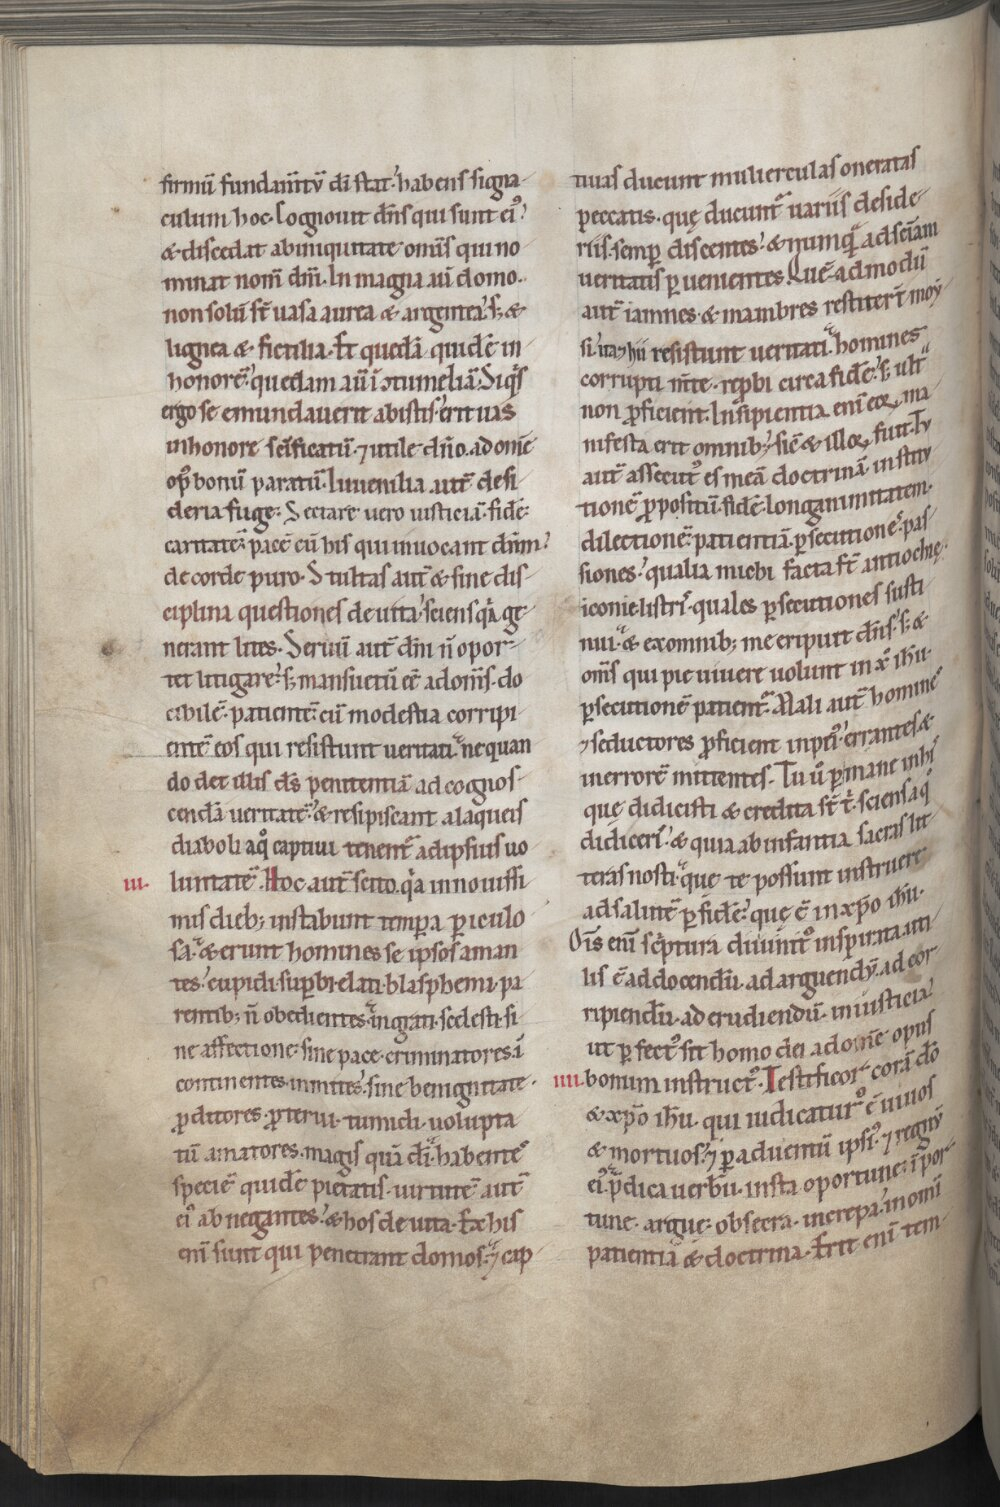 firmū fundam̄tū dī stat. habens signa
culum hoc. Cognouit dn̄s qui sunt ei᷒.
& discedat ab iniquitate omīs qui no
minat nom̄ dn̄i. In magna aū domo.
non solū sT uasa aurea & argentea. s; &
lignea & fictilia. Et quedā quidē in
honorē. quedam aū ī ꝯtumeliā. Siq̇s
ergo se emundauerit ab istis. erit uas
in honore sc̄ificatū. ⁊ utile dn̄o. ad omē
op᷒ bonū paratū. Iuuenilia aut̄ desi
deria fuge. Sectare uero iusticiā. fidē.
caritatē. pacē cū his qui inuocant dn̄m
de corde puro. Stultas aut̄ & sine dis
ciplina questiones deuita. sciens qꝛa ge
nerant lites. Seruū aut̄ dn̄i n̄ opor
tet litigare. s; mansuetū eē ad om̄s. do
cibilē. patientē. cū modestia corripi
entē eos qui resistunt ueritati. nequan
do det illis ds̄ penitentiā ad cognos
cendā ueritatē. & resipiscant a laqueis
diaboli a q̊ captiui tenent᷑ ad ipsius uo
iii. luntatē. Hoc aut̄ scito. qꝛa in nouissi
mis dieb; instabunt tempꝑa periculo
sa. & erunt homines se ipsos aman
tes. cupidi. suꝑbi. elati. blasphemi. pa
rentib; n̄ obedientes. ingrati. scelesti. si
ne affectione. sine pace. criminatores. ī
continentes. inmites. sine benignitate.
ꝓditores. ꝓterui. tumidi. uolupta
tū amatores. magis quā dī. habente᷒
speciē quidē pietatis. uirtutē aut̄
ei᷒ abnegantes. & hos deuita. Ex his
enī sunt qui penetrant domos. ⁊ cap
tiuas ducunt mulierculas oneratas
peccatis. quę ducunt᷑ uariis deside
riis. semꝑ discentes. & nunq̄ ad sc̄iam
ueritatis ꝑuenientes. Quē ad modū
aut̄ iamnes & mambres restiterT moy
si. ita ⁊ hii resistunt ueritati. homines
corrupti m̄te. reꝓbi circa fidē. s; ult᷑
non ꝓficient. Insipientia enī eoꝝ ma
nifesta erit omnib; sic̄ & illoꝝ fuit. Tu
aut̄ assecut᷒ es meā doctrinā. institu
tionē. ꝓpositū. fidē. longanimitatem.
dilectionē. patientiā. ꝑsecutionē. pas
siones. qualia michi facta sT antiochię.
iconie. listrꝭ. quales ꝑsecutiones susti
nui. & ex omnib; me eripuit dn̄s. s; &
om̄s qui pie uiuere uolunt in xp̄ ihū.
ꝑsecutionē patient᷑. Mali aut̄ homine᷒
⁊ seductores ꝓficient in pei᷒. errantes &
in errorē mittentes. Tu ů ꝑmane in hi᷒
quę didicisti & credita sT t̄. sciens a q̊
didiceris. & quia ab infantia sacras lit
teras nosti. quę te possunt instruere
ad salutē ꝑ fidē. quę ē in xp̄o ihū.
Om̄s enī sc̄ptura diuinit᷒ inspirata uti
lis ē ad docendū. ad arguendū. ad cor
ripiendū. ad erudiendū. in iusticia.
ut ꝑfect᷒ sit homo dei ad omē opus
iiii. bonum instruct᷒. Testificor corā dō
& xp̄o ihū. qui iudicatur᷒ ē uiuos
& mortuos. ⁊ ꝑ aduentū ipsi᷒. ⁊ regnū
ei᷒. p̄dica uerbū. insta oportune. īpor
tune. argue. obsecra. increpa. in omī
patientiā & doctrina. Erit enī tem